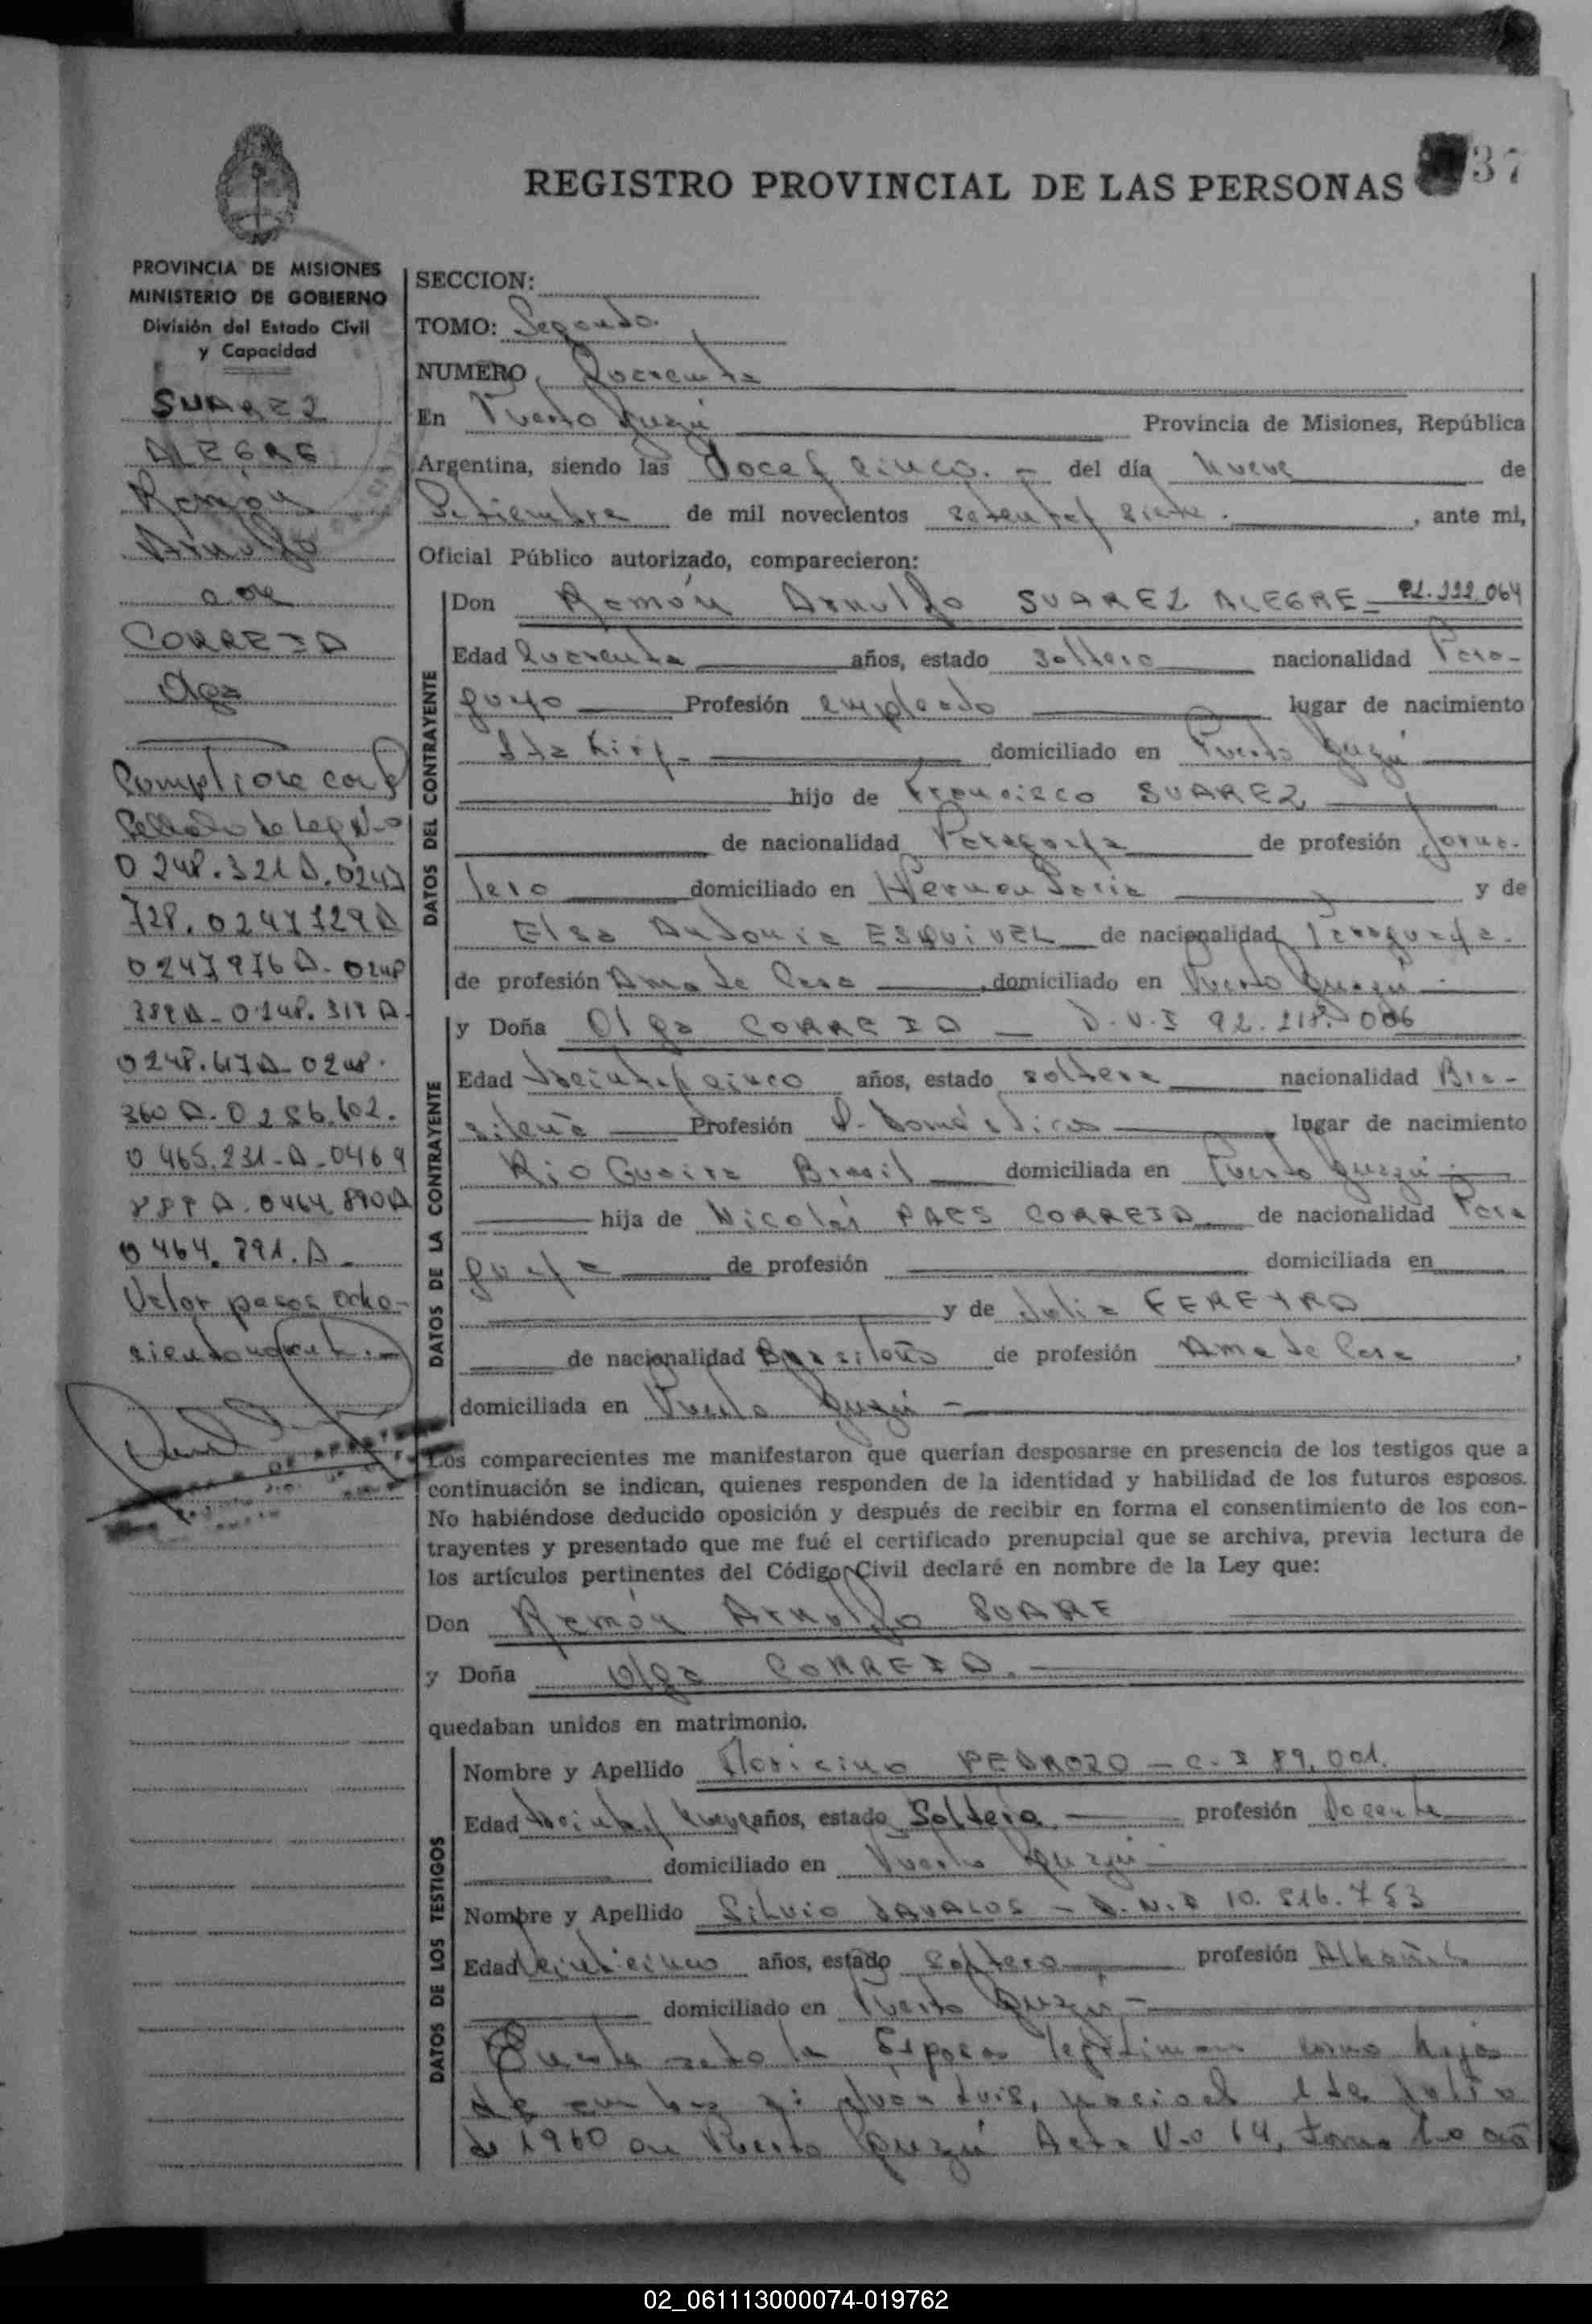 REGISTRO PROVINCIAL DE LAS PERSONAS
37
PROVINCIA DE MISIONES
MINISTERIO DE GOBIERNO
División del Estado Civil
y Capacidad
SUAREZ
ALEGRE
Ramón
Arnulfo
con
CORREIA
Olga
0248.321A.0247
728.0247729A
0247976A.0248
0464.891.A
Valor pesos ocho-
SECCION:
TOMO: Segundo.
NUMERO Cuarenta
En Puerto Yguazú Provincia de Misiones, República
Argentina, siendo las doce y cinco.- del día nueve de
Setiembre de mil novecientos setenta y siete. , ante mi,
Oficial Público autorizado, comparecieron:
DATOS DEL CONTRAYENTE
Don Ramón Arnulfo SUAREZ ALEGRE
Edad Cuarenta años, estado soltero nacionalidad Para-
guayo Profesión empleado lugar de nacimiento
domiciliado en Puerto Yguazú
hijo de Francisco SUAREZ
de nacionalidad Paraguaya de profesión Jorna-
lero domiciliado en y de
Elsa Antonia ESQUIVEL de nacionalidad Paraguaya.
de profesión Ama de Casa , domiciliado en Puerto Yguazú
DATOS DE LA CONTRAYENTE
y Doña Olga CORREIA 92.218.006
Edad treinta y cinco años, estado soltera nacionalidad Bra-
sileña Profesión Q. Domésticos lugar de nacimiento
Brasil domiciliada en Puerto Yguazú
hija de Nicolás PAES CORREIA de nacionalidad Para
guaya de profesión domiciliada en
y de Julia FEREYRA
de nacionalidad Brasileña de profesión Ama de Casa ,
domiciliada en Puerto Yguazú
Los comparecientes me manifestaron que querían desposarse en presencia de los testigos que a
continuación se indican, quienes responden de la identidad y habilidad de los futuros esposos.
No habiéndose deducido oposición y después de recibir en forma el consentimiento de los con-
trayentes y presentado que me fué el certificado prenupcial que se archiva, previa lectura de
los artículos pertinentes del Código Civil declaré en nombre de la Ley que:
Don Ramón Arnulfo SUARE
y Doña Olga CORREIA.
quedaban unidos en matrimonio.
DATOS DE LOS TESTIGOS
Nombre y Apellido PEDROZO - C.I 89.001.
Edad treinta y nueve años, estado Soltero profesión Docente
domiciliado en Puerto Yguazú
Nombre y Apellido Silvio DAVALOS - D.N.I 10.816.753
Edad veinticinco años, estado soltero profesión Albañil
domiciliado en Puerto Yguazú
En este acto la Esposa como hijo
de Julio
de 1960 en Puerto Yguazú Acta N-o 64, Tomo 1-o
02_061113000074-019762